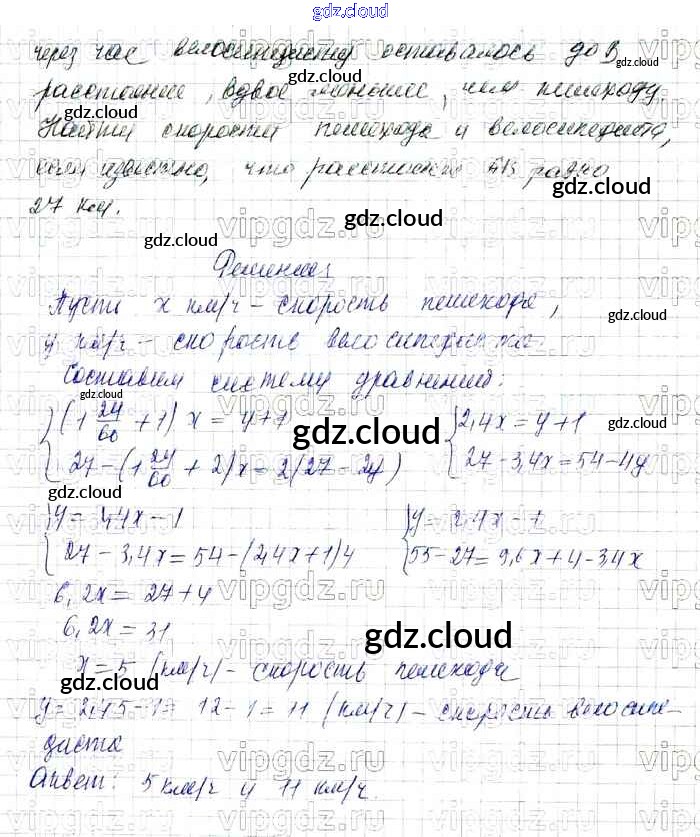 gdz.cloud
через час велосипедисту оставалось до В
расстояние, вдвое меньшее, чем пешеходу.
Найти скорости пешехода и велосипедиста,
если известно, что расстояние АВ равно
27 км.
Решение
Пусть x км/ч – скорость пешехода,
y км/ч – скорость велосипедиста.
Составим систему уравнений:
{(1 24/60 + 1) x = y + 1
27 – (1 24/60 + 2) x = 2(27 – 2y)
{2,4x = y + 1
27 – 3,4x = 54 – 4y
{y = 2,4x – 1
27 – 3,4x = 54 – (2,4x + 1) 4
{y = 2,4x – 1
55 – 27 = 9,6x + 4 – 3,4x
6,2x = 27 + 4
6,2x = 31
x = 5 (км/ч) – скорость пешехода
y = 2,4·5 – 1 = 12 – 1 = 11 (км/ч) – скорость велосипе-
диста
Ответ: 5 км/ч и 11 км/ч.